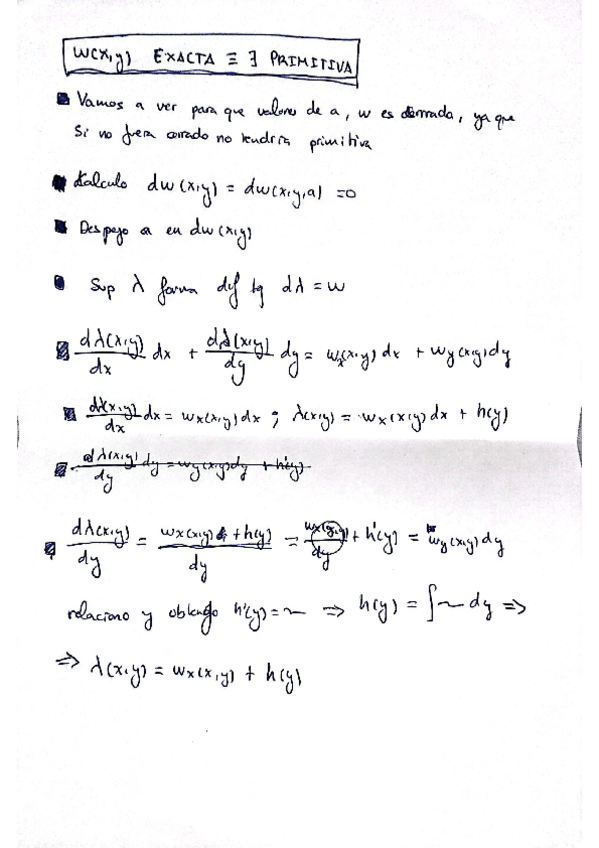 W(x,y) EXACTA ≡ ∃ PRIMITIVA
Vamos a ver para que valores de a, w es cerrada, ya que
Si no fuera cerrado no tendría primitiva
Calculo dw(x,y) = dw(x,y,a) =0
Despejo a en dw(x,y)
Sup λ forma dif tq dλ = w
dλ(x,y)/dx dx + dλ(x,y)/dy dy = wx(x,y) dx + wy(x,y)dy
dλ(x,y)/dx dx = wx(x,y)dx ; λ(x,y) = wx(x,y)dx + h(y)
dλ(x,y)/dy dy = wy(x,y)dy + h'(y)
dλ(x,y)/dy = wx(x,y) + h(y)/dy = wx(x,y)/dy + h'(y) = wy(x,y)dy
relaciono y obtengo h'(y) = ~ ⇒ h(y) = ∫ ~ dy ⇒
⇒ λ(x,y) = wx(x,y) + h(y)